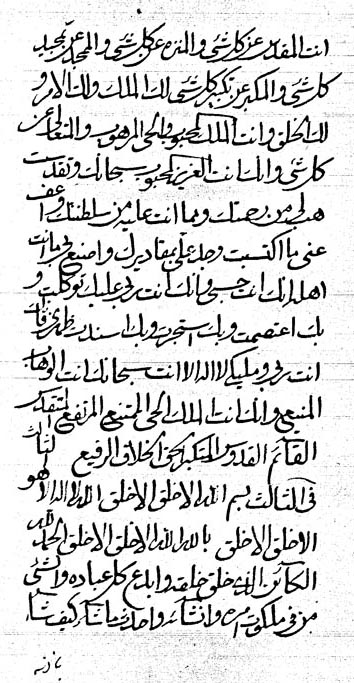 انت المقدس عن كل شئ و المنزه عن كل شئ و الممجد عن تمجيد
كل شئ و المكبر عن تكبير كل شئ لك الملك و لك الامر و
لك الخلق و انت الملك المحبوب و الحي المرهوب و المتعالي عن
كل شئ و انك انت العزيز المحبوب سبحانك و تقدست
هب لي من رحمتك و مما انت عليه من سلطنتك و اعف
عني ما اكتسبت وجد علي بمقاديرك و اصنع لي ما انت
اهله انك انت حسبي و انك انت ربي عليك توكلت و
بك اعتصمت و بك استجرت و بك اسندت ظهري فانك
انت ربي و مليكي لا اله الا انت سبحانك انت الوهاب
المنيع و انك انت الملك الحي الممتنع المرتفع المتقدر
القائم القدوس المتكبر الحق الخلاق الرفيع
في الثالث بسم الله الاخلق الاخلق الله لا اله الا هو
الاخلق الاخلق بالله الله الاخلق الاخلق الحمد لله
الكائن الذي خلق خلقه و ابدع كل عباده و انشئ
من في ملكوت امره و انشائه و احدث ما شاء كيف شاء